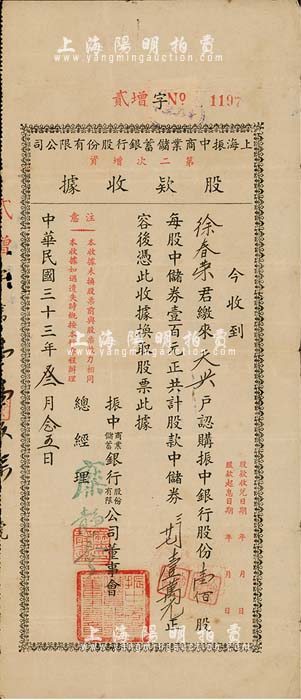 上海陽明拍賣
www.yangmingauction.com
貳增字No 1197
上海振中商業儲蓄銀行股份有限公司
第二次增資
股款收據
股款收訖日期 年 月 日
股款起息日期 年 月 日
今收到
徐春榮君繳來天興戶認購振中銀行股份壹佰股
每股中儲券壹百元正共計股款中儲券壹萬元正
容後憑此收據換取股票此據
振中商業儲蓄銀行股份有限公司董事會
總經理
注意
本收據未換股票前與股票效力相同
本收據如遇遺失時概按本行章程辦理
中華民國三十三年叁月廿五日
上海陽明拍賣
www.yangmingauction.com